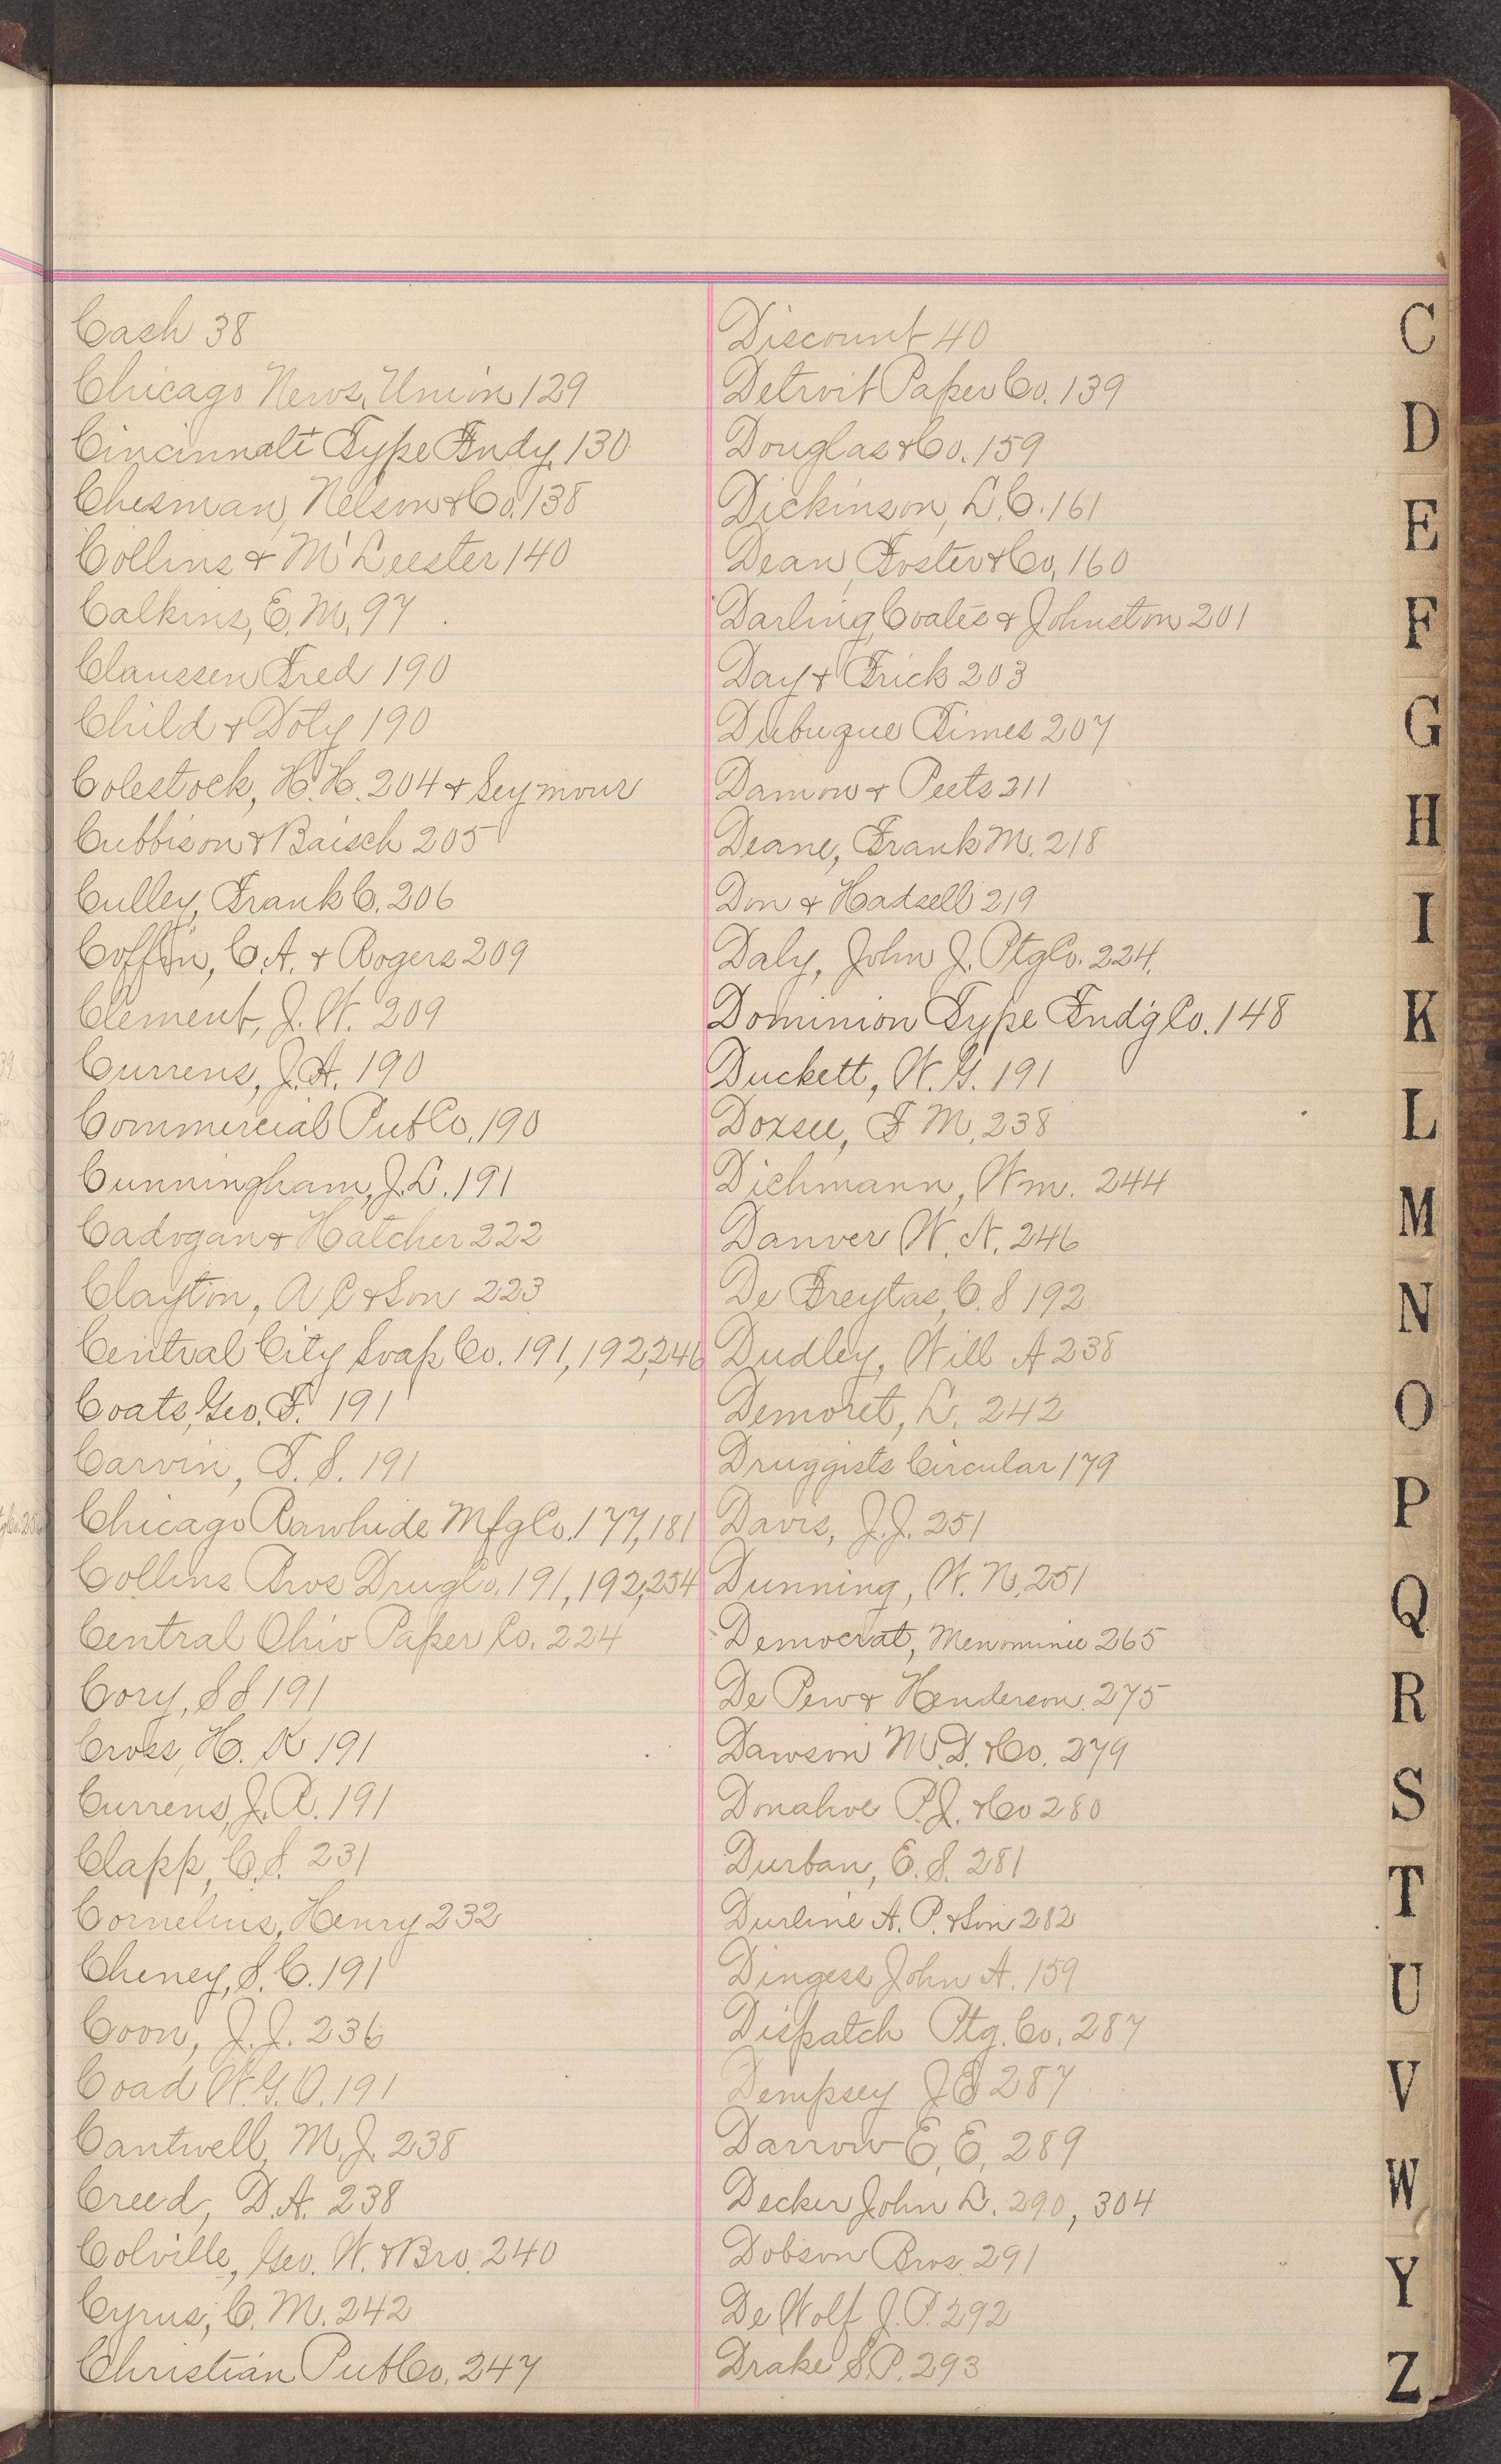 Cash 38
Chicago News, Union 129
Cincinnati Type Fndy, 130
Chesman, Nelson & Co. 138
Collins & M'Leester 140
Calkins, E. M. 97
Claussen Fred 190
Child & Doty 190
Colestock, H. H. 204 & Seymour
Cubbison & Baisch 205
Culley, Frank C. 206
Coffin, C. A. & Rogers 209
Clement, J. W. 209
Currens, J. A. 190
Commercial Pub Co, 190
Cunningham, J. L. 191
Cadogan & Hatcher 222
Clayton, A C & Son 223
Central City Soap Co. 191, 192, 246
Coats, Geo. F. 191
Carvin, T. S. 191
Chicago Rawhide Mfg Co. 177, 181
Collins Bros Drug Co. 191, 192, 254
Central Ohio Paper Co. 224
Cory, S S 191
Cross, H. K 191
Currens, J. R. 191
Clapp, C. S. 231
Cornelius, Henry 232
Cheney, S. C. 191
Coon, J. J. 236
Coad W. G. O. 191
Cantwell, M. J. 238
Creed, D. A. 238
Colville, Geo. W. & Bro. 240
Cyrus, C. M. 242
Christian Pub Co. 247
Discount 40
Detroit Paper Co. 139
Douglas & Co. 159
Dickinson, L. C. 161
Dean, Foster & Co, 160
Darling, Coates & Johnston 201
Day & Frick 203
Dubuque Times 207
Damon & Peets 211
Deane, Frank M. 218
Don & Hadsell 219
Daly, John J. Ptg Co. 224
Dominion Type Fndg Co. 148
Duckett, W. G. 191
Doxsee, F M, 238
Dichmann, Wm. 244
Danver W. N. 246
De Freytas, C. S 192
Dudley, Will A 238
Demoret, L. 242
Druggists Circular 179
Davis, J. J. 251
Dunning, W. N, 251
Democrat, Menominee 265
De Pew & Henderson. 275
Dawson M. D. & Co. 279
Donahoe P. J. & Co 280
Durban, E. S. 281
Durline A. P. & Son 282
Dingess John A. 159
Dispatch Ptg. Co. 287
Dempsey J E 287
Darrow E, E, 289
Decker John L. 290, 304
Dobson Bros. 291
De Wolf J. P. 292
Drake S. P. 293
C
D
E
F
G
H
I
K
L
M
N
O
P
Q
R
S
T
U
V
W
Y
Z